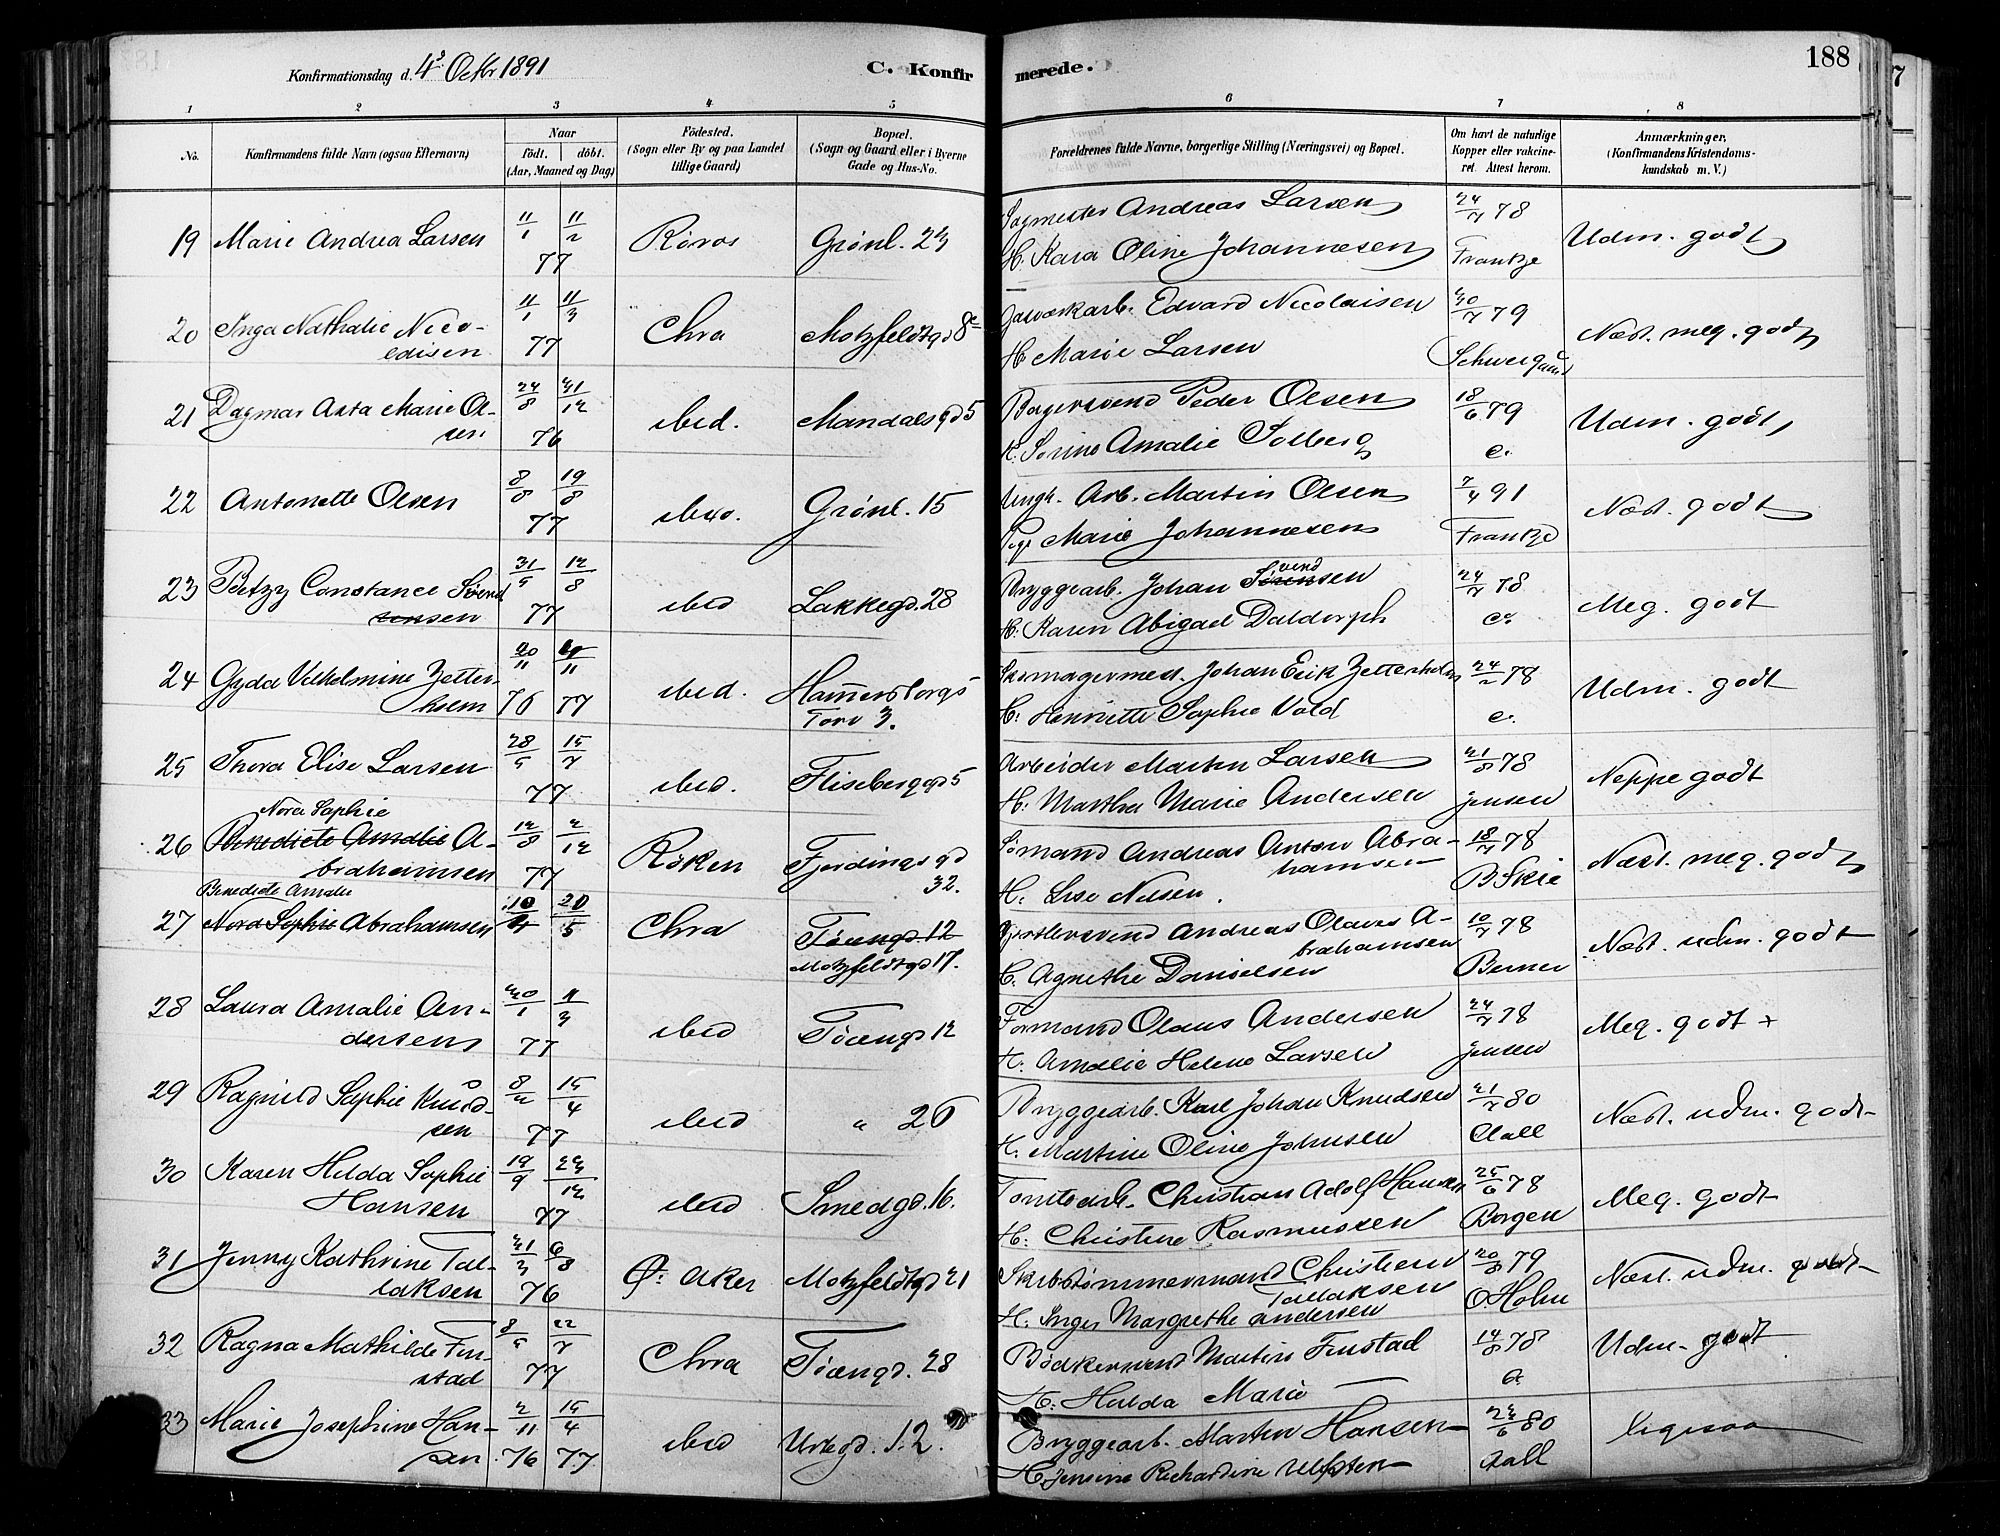 188
Konfirmationsdag d. 4de Octbr 1891
C. Konfirmerede.
1 2 3 4 5 6 7 8
No. Konfirmandens fulde Navn (ogsaa Efternavn) Naar født. døbt. (Aar, Maaned og Dag) Fødested. (Sogn eller By og paa Landet tillige Gaard) Bopæl. (Sogn og Gaard eller i Byerne Gade og Hus-No. Forældrenes fulde Navne, borgerlige Stilling (Næringsvei) og Bopæl. Om havt de naturlige Kopper eller vakcineret. Attest herom. Anmærkninger. (Konfirmandens Kristendomskundskab m. V.)
19 Marie Andrea Larsen 11/1 11/2 77 Røros Grønl. 23 Sagmester Andreas Larsen 24/7 78 Udm. godt
H. Kara Oline Johannesen Frantze
20 Inga Nathalie Nico- 11/1 11/3 Chra Motzfeldtgd 8c Gasværkarb. Edvard Nicolaisen 30/7 79 Næst. meg. godt
laisen 77 H. Marie Larsen Schwergaard
21 Dagmar Asta Marie Ol- 24/8 31/12 ibid. Mandalsgd 5 Borgersvend Peder Olsen 18/6 79 Udm. godt
sen 76 H. Sorine Amalie Solberg e.
22 Antonette Olsen 8/8 19/8 77 ibid. Grønl. 15 Ungk. Arb. Martin Olsen 7/4 91 Næst. godt
Pige Marie Johannesen Frantze
23 Betzy Constance Svend 31/5 12/8 ibid Lakkegd. 28 Bryggearb. Johan Svendsen 24/7 78 Meg. godt
sen 77 H. Karen Abigael Daldorph e.
24 Gyda Vilhelmine Zetter- 20/11 ibid. Hammersborgs Skomagermed. Johan Erik Zetterholm 24/2 78 Udm. godt
holm 76 77 Torv 3. H. Henriette Sophie Vold e.
25 Thora Elise Larsen 28/5 15/7 77 ibid. Flisberggd 5 Arbeider Martin Larsen 21/8 78 Neppe godt
H. Marthea Marie Andersen Jensen
Nora Sophie
26 Benedicte Amalie A- 12/8 2/12 Røken Fjerdings gd Sømand Andreas Anton Abra- 18/7 78 Næst. meg. godt
brahamsen 77 32. hamsen
H. Lise Nilsen. B Skie
Benedicte Amalie
27 Nora Sophie Abrahamsen 10/4 20/5 Chra Tøiengd. 12 Andreas Olaves A- 10/7 78 Næst. udm. godt
Motzfeldtgd 17. brahamsen
H. Agnethe Danielsen Berner
28 Laura Amalie An- 30/1 1/3 ibid Tøiengd 12 Formand Olaus Andersen 24/7 78 Meg. godt +
dersen 77 H. Amalie Helene Larsen Jensen
29 Ragnild Sophie Knud- 8/2 15/4 ibid " 26 Bryggearb. Karl Johan Knudsen 21/7 80 Næst. udm. godt
sen 77 H. Martine Oline Johnsen Aall
30 Karen Hilda Sophie 19/9 23/12 ibid Smedgd. 16. Tomtearb. Christian Adolf Hansen 25/6 78 Meg. godt
Hansen 77 H. Christine Rasmussen Borgen
31 Jenny Kathrine Tal- 31/3 6/8 Ø. Aker Motzfeldtgd 21 Skibstømmermand Christian 20/8 79 Næst. udm. godt
laksen 76 Tallaksen
H. Inger Margrethe Andersen O Holm
32 Ragna Mathilde Fin- 8/5 22/7 Chra Tøiengd. 28 Bødkersvend Martin Finstad 14/8 78 Udm. godt
stad 77 H. Hulda Marie — e.
33 Marie Josephine Han- 2/11 15/4 ibid Urtegd. 12. Bryggearb. Martin Hansen 23/6 80 ligesaa
sen 76 77 H. Jensine Richardine Ulfsten Aall